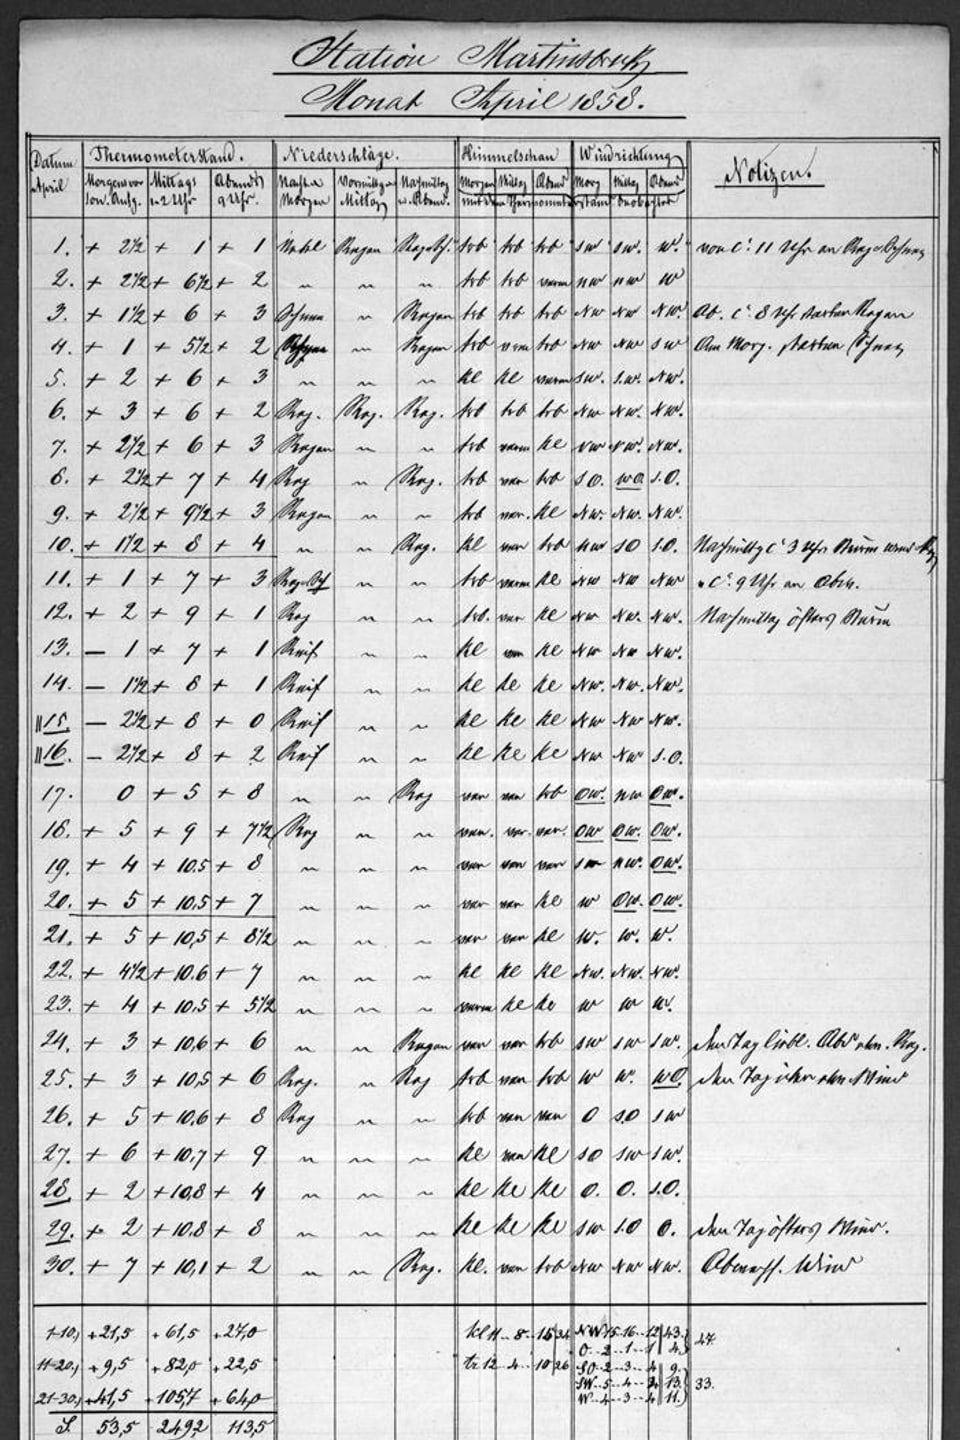 Station Martinsbruck
Monat April 1858.
Datum April Thermometerstand. Niederschläge. Himmelschau Windrichtung Notizen.
Morgens vor Son. Aufg. Mittags 2 Uhr Abends 9 Uhr. Nachts Morgen Vormittag Mittag Nachmittag u. Abend. Morgen Mittag Abend Morg Mittag Abend
1. + 2½ + 1 + 1 Nebel Regen Reg. Sch. trb trb trb SW SW. W. von C. 11 Uhr an Reg.
2. + 2½ + 6½ + 2 " " " trb trb NW NW W
3. + 1½ + 6 + 3 Schnee " Regen trb trb trb NW NW NW. Ab. C. 8 Uhr starker Regen
4. + 1 + 5½ + 2 " Regen trb trb NW NW SW Am Morg. starken Schnee
5. + 2 + 6 + 3 " " " kl kl SW. SW. NW.
6. + 3 + 6 + 2 Reg. Reg. Reg. trb trb trb NW NW. NW.
7. + 2½ + 6 + 3 Regen " " trb verän kl NW NW. NW.
8. + 2½ + 7 + 4 Reg " Reg. trb ver trb SO. WO S.O.
9. + 2½ + 9½ + 3 Regen " " trb ver. kl NW. NW. NW.
10. + 1½ + 8 + 4 " " Reg. kl ver trb NW SO S.O. Nachmittg C. 3 Uhr Sturm
11. + 1 + 7 + 3 Reg. Sch " " trb verän kl NW NW NW " C. 9 Uhr an
12. + 2 + 9 + 1 Reg " " trb. ver kl NW NW. NW. Nachmittag öfters Sturm
13. — 1 + 7 + 1 Reif " " kl ver kl NW NW NW.
14. — 1½ + 8 + 1 Reif " " kl kl kl NW. NW. NW.
15. — 2½ + 8 + 0 Reif " " kl kl kl NW NW NW.
16. — 2½ + 8 + 2 Reif " " kl kl kl NW NW S.O.
17. 0 + 5 + 8 " " Reg ver ver trb OW. NW OW.
18. + 5 + 9 + 7½ Reg " " ver. ver. ver. OW OW. OW.
19. + 4 + 10.5 + 8 " " " ver ver ver SW NW. OW.
20. + 5 + 10,5 + 7 " " " ver ver kl W OW. OW.
21. + 5 + 10,5 + 8½ " " " ver ver kl W. W. W.
22. + 4½ + 10.6 + 7 " " " kl kl kl NW. NW. NW.
23. + 4 + 10.5 + 5½ " " " verän kl kl W W W.
24. + 3 + 10,6 + 6 " " Regen ver ver trb SW SW SW. den Tag
25. + 3 + 10,5 + 6 Reg. " Reg trb ver trb W W. WO. den Tag Wind
26. + 5 + 10,6 + 8 Reg " " trb ver ver O S.O SW
27. + 6 + 10,7 + 9 " " " kl ver kl SO SW SW.
28. + 2 + 10,8 + 4 " " " kl kl kl O. O. S.O.
29. + 2 + 10.8 + 8 " " " kl kl kl SW S.O O. den Tag öfters Wind.
30. + 7 + 10,1 + 2 " " Reg. kl. ver trb NW NW NW. Wind
1-10, +21,5 +61,5 +27,0 kl 11 - 8 - 15 34 NW 15-16-12 43. 47.
O. 2 - 1 - 1 4.
11-20, +9,5 +82,0 +22,5 tr 12 - 4 - 10 26 SO - 2 - 3 - 4 9.
SW - 5 - 4 - 4 13. 33.
21-30, +41,5 +105,7 +64,0 W - 4 - 3 - 4 11.
S. 53,5 249,2 113,5